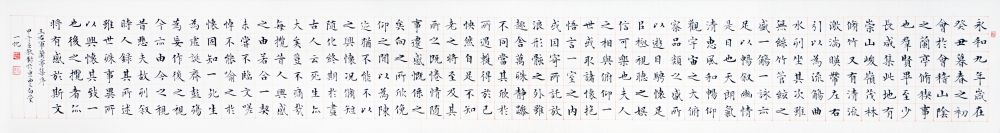 永和九年歲在
癸丑暮春之初
會于會稽山陰
之蘭亭脩稧事
也群賢畢至少
長咸集此地有
崇山峻嶺茂林
脩竹又有清流
激湍暎帶左右
引以為流觴曲
水列坐其次雖
無絲竹管弦之
盛一觴一詠亦
足以暢敘幽情
是日也天朗氣
清惠風和暢仰
觀宇宙之大俯
察品類之盛所
以遊目騁懷足
以極視聽之娛
信可樂也夫人
之相與俯仰一
世或取諸懷抱
悟言一室之內
或因寄所託放
浪形骸之外雖
趣舍萬殊靜躁
不同當其欣於
所遇蹔得於己
快然自足不知
老之將至及其
所之既惓情隨
事遷感慨係之
矣向之所欣俛
仰之間以為陳
迹猶不能不以
之興懷況脩短
隨化終期於盡
古人云死生亦
大矣豈不痛哉
每攬昔人興感
之由若合一契
未嘗不臨文嗟
悼不能喻之於
懷固知一死生
為虛誕齊彭殤
為妄作後之視
今亦由今之視
昔悲夫故列敘
時人錄其所述
雖世殊事異所
以興懷其致一
也後之攬者亦
將有感於斯文
王右軍蘭亭集序
一帆